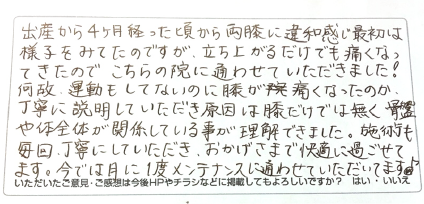 出産から4ヶ月経った頃から両膝に違和感じ最初は
様子をみてたのですが、立ち上がるだけでも痛くなっ
てきたので こちらの院に通わせていただきました!
何故、運動もしてないのに膝が痛くなったのか、
丁寧に説明していただき原因は膝だけでは無く 骨盤
や体全体が関係している事が理解できました。施術も
毎回、丁寧にしていただき、おかげさまで快適に過ごせて
ます。今では月に1度メンテナンスに通わせていただいてます♪
いただいたご意見・ご感想は今後HPやチラシなどに掲載してもよろしいですか? はい・いいえ